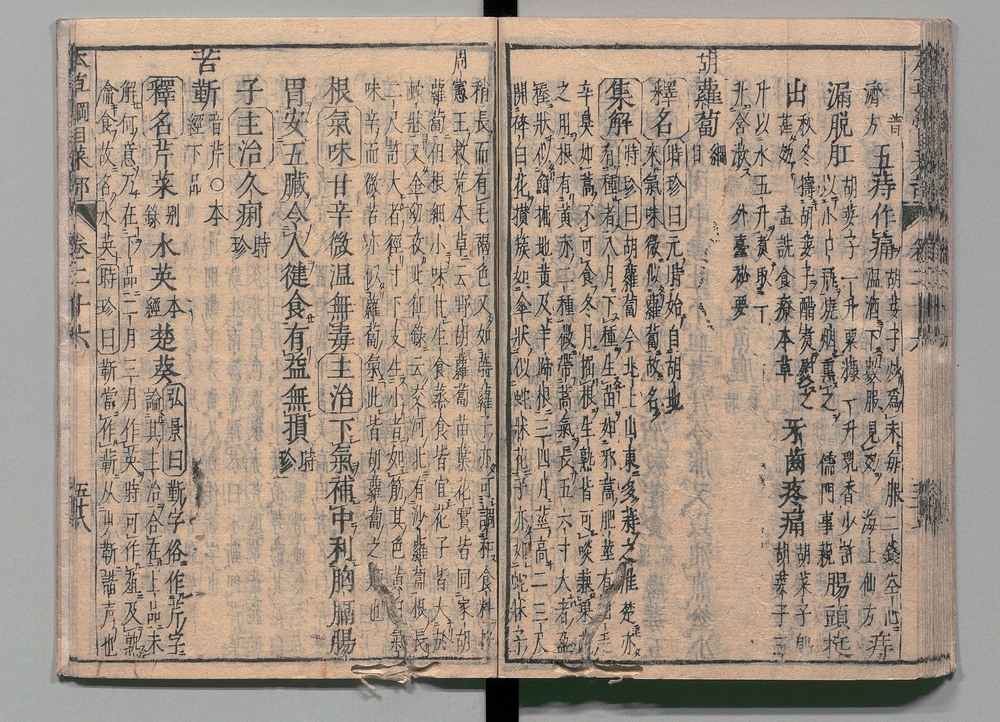 濟方 五痔作痛 胡荽子炒爲末每服二錢空心
温酒下數服見效 海上仙方 痔
漏脱肛 胡荽子一升粟糠一升乳香少許
以小口瓶燒烟熏之 儒門事親 腸頭挺
出 秋冬擣胡荽子醋煮熨之
甚效 孟詵食療本草 牙齒疼痛 胡菜子即
胡荽子五
升以水五升煮取一
升含漱 外臺秘要
胡蘿蔔 綱目
釋名 時珍曰元時始自胡地
來氣味微似蘿蔔故名
集解 時珍曰胡蘿蔔今北土山東多蒔之淮楚亦
有種者八月下種生苗如邪蒿肥莖有白毛
辛臭如蒿不可食冬月掘根生熟皆可啖兼果蔬
之用根有黄赤二種微帶蒿氣長五六寸大者盈
握狀似鮮掘地黄及羊蹄根三四月莖高二三尺
開碎白花攢簇如傘狀似蛇牀花子亦如蛇牀子
稍長而有毛褐色又如蒔蘿子亦可調和食料按
周憲王救荒本草云野胡蘿蔔苗葉花實皆同家胡
蘿蔔但根細小味甘生食蒸食皆宜花子皆大於
蛇牀又金幼孜北征錄云交河北有沙蘿蔔根長
二尺許大者徑寸下支生小者如筯其色黄白氣
味辛而微苦亦似蘿蔔氣此皆胡蘿蔔之類也
根氣味甘辛微温無毒主治下氣補中利胸膈腸
胃安五臟令人健食有益無損 時珍
子主治久痢 時珍
苦斳 音芹○本
經下品
釋名芹菜 别錄 水英 本經 楚葵 弘景曰斳字俗作芹字
論其主治合在上品未
解何意乃在下品二月三月作英時可作葅及熟瀹
食故名水英時珍曰斳當作蘄从艸蘄諧聲也
本草綱目菜部 卷二十六 五十八